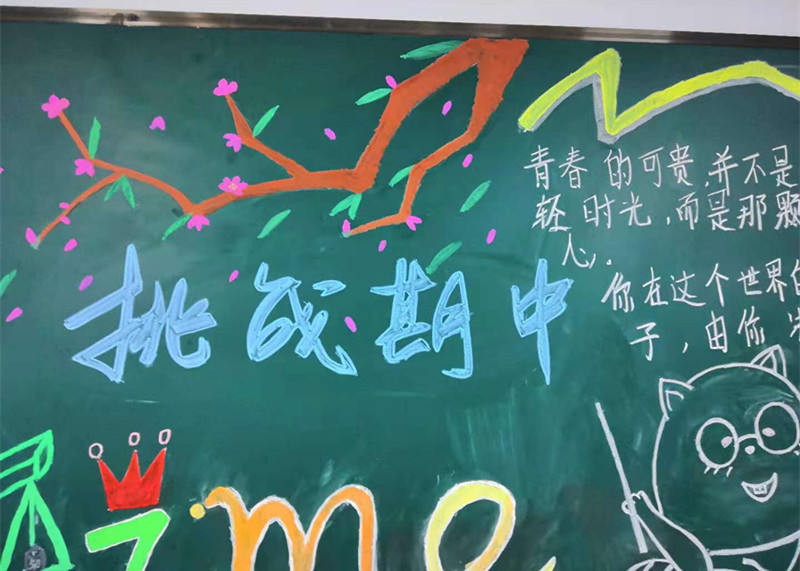 青春的可贵,并不是
轻时光,而是那颗
心.
你在这个世界的
子,由你
挑战期中
me